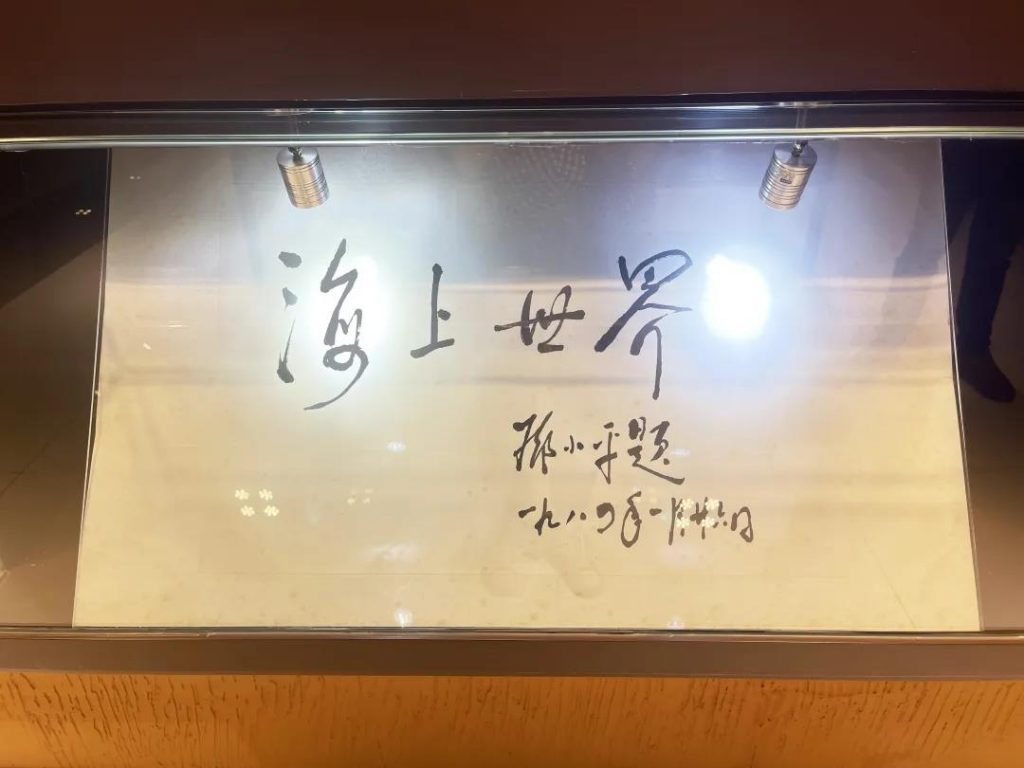 海上世界
邓小平题
一九八四年一月廿六日